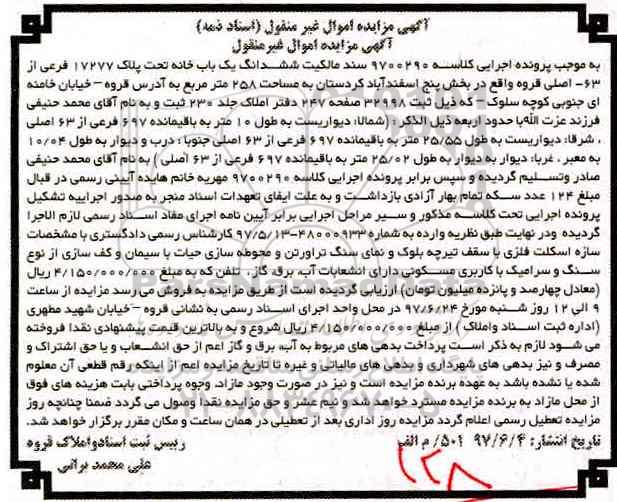 آگهی مزایده اموال غیر منقول (اسناد ذمه)
آگهی مزایده اموال غیرمنقول
به موجب پرونده اجرایی کلاسه ۹۷۰۰۲۹۰ سند مالکیت ششدانگ یک باب خانه تحت پلاک ۱۷۲۷۷ فرعی از
۶۳- اصلی قروه واقع در بخش پنج اسفندآباد کردستان به مساحت ۲۵۸ متر مربع به آدرس قروه – خیابان خامنه
ای جنوبی کوچه سلوک – که ذیل ثبت ۳۲۹۹۸ صفحه ۲۴۷ دفتر املاک جلد ۲۳۰ ثبت و به نام آقای محمد حنیفی
فرزند عزت الله با حدود اربعه ذیل الذکر : (شمالا: دیواریست به طول ۱۰ متر به باقیمانده ۶۹۷ فرعی از ۶۳ اصلی
، شرقا: دیواریست به طول ۲۵/۵۵ متر به باقیمانده ۶۹۷ فرعی از ۶۳ اصلی جنوبا : درب و دیوار به طول ۱۰/۰۴
به معبر ، غربا: دیوار به دیوار به طول ۲۵/۰۲ متر به باقیمانده ۶۹۷ فرعی از ۶۳ اصلی ) به نام آقای محمد حنیفی
صادر وتسلیم گردیده و سپس برابر پرونده اجرایی کلاسه ۹۷۰۰۲۹۰ مهریه خانم هایده آیینی رسمی در قبال
مبلغ ۱۲۴ عدد سکه تمام بهار آزادی بازداشت و به علت ایفای تعهدات اسناد منجر به صدور اجراییه تشکیل
پرونده اجرایی تحت کلاسه مذکور و سیر مراحل اجرایی برابر آیین نامه اجرای مفاد اسناد رسمی لازم الاجرا
گردیده ودر نهایت طبق نظریه وارده به شماره ۴۸۰۰۰۹۳۳-۹۷/۵/۱۳ کارشناس رسمی دادگستری با مشخصات
سازه اسکلت فلزی با سقف تیرچه بلوک و نمای سنگ تراورتن و محوطه سازی حیات با سیمان و کف سازی از نوع
سنگ و سرامیک با کاربری مسکونی دارای انشعابات آب، برق، گاز ، تلفن که به مبلغ ۴/۱۵۰/۰۰۰/۰۰۰ ریال
(معادل چهارصد و پانزده میلیون تومان) ارزیابی گردیده است از طریق مزایده به فروش می رسد مزایده از ساعت
۹ الی ۱۲ روز شنبه مورخ ۹۷/۶/۲۴ در محل واحد اجرای اسناد رسمی به نشانی قروه – خیابان شهید مطهری
(اداره ثبت اسناد واملاک ) از مبلغ ۴/۱۵۰/۰۰۰/۰۰۰ ریال شروع و به بالاترین قیمت پیشنهادی نقدا فروخته
می شود لازم به ذکر است پرداخت بدهی های مربوط به آب، برق و گاز اعم از حق انشعاب و یا حق اشتراک و
مصرف و نیز بدهی های شهرداری و بدهی های مالیاتی و غیره تا تاریخ مزایده اعم از اینکه رقم قطعی آن معلوم
شده یا نشده باشد به عهده برنده مزایده است و نیز در صورت وجود مازاد، وجوه پرداختی بابت هزینه های فوق
از محل مازاد به برنده مزایده مسترد خواهد شد و نیم عشر و حق مزایده نقدا وصول می گردد ضمنا چنانچه روز
مزایده تعطیل رسمی اعلام گردد مزایده روز اداری بعد از تعطیلی در همان ساعت و مکان مقرر برگزار خواهد شد.
تاریخ انتشار: ۹۷/۶/۴ ۵۰۱/ م الف
رییس ثبت اسنادواملاک قروه
علی محمد براتی
۱۲۸